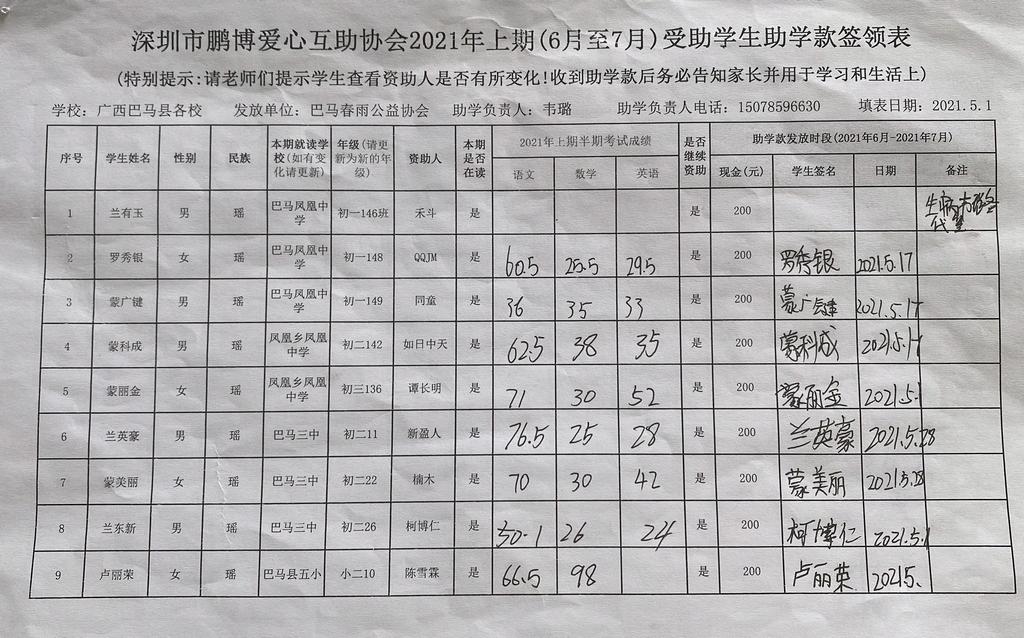 深圳市鹏博爱心互助协会2021年上期(6月至7月)受助学生助学款签领表
(特别提示:请老师们提示学生查看资助人是否有所变化!收到助学款后务必告知家长并用于学习和生活上)
学校：广西巴马县各校 发放单位：巴马春雨公益协会 助学负责人：韦璐 助学负责人电话：15078596630 填表日期：2021.5.1
序号 学生姓名 性别 民族 本期就读学校(如有变化请更新) 年级(请更新为新的年级) 资助人 本期是否在读 2021年上期半期考试成绩 是否继续资助 助学款发放时段(2021年6月-2021年7月)
语文 数学 英语 现金(元) 学生签名 日期 备注
1 兰有玉 男 瑶 巴马凤凰中学 初一146班 禾斗 是 是 200 代
2 罗秀银 女 瑶 巴马凤凰中学 初一148 QQJM 是 60.5 25.5 29.5 是 200 罗秀银 2021.5.17
3 蒙广键 男 瑶 巴马凤凰中学 初一149 同童 是 36 35 33 是 200 蒙广键 2021.5.17
4 蒙科成 男 瑶 凤凰乡凤凰中学 初二142 如日中天 是 62.5 38 35 是 200 蒙科成 2021.5.17
5 蒙丽金 女 瑶 凤凰乡凤凰中学 初三136 谭长明 是 71 30 52 是 200 蒙丽金 2021.5.1
6 兰英豪 男 瑶 巴马三中 初二11 新盈人 是 76.5 25 28 是 200 兰英豪 2021.5.28
7 蒙美丽 女 瑶 巴马三中 初二22 楠木 是 70 30 42 是 200 蒙美丽 2021.5.28
8 兰东新 男 瑶 巴马三中 初二26 柯博仁 是 50.1 26 24 是 200 柯博仁 2021.5.1
9 卢丽荣 女 瑶 巴马县五小 小二10 陈雪霖 是 66.5 98 是 200 卢丽荣 2021.5.